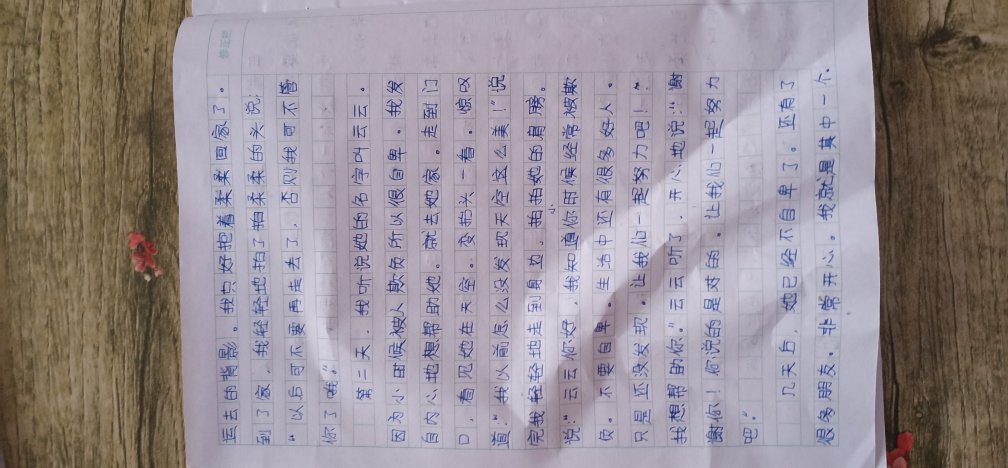 远去的背影。我只好抱着柔柔回家了。
到了家，我轻轻地拍了拍柔柔的头说：
“以后可不要再走丢了，否则我可不管
你了哦。”
第二天，我听说她的名字叫云云。
因为小时候被人欺负所以很自卑。我发
自内心地想帮助她。就去她家。走到门
口，看见她在天空。变抬头一看。惊叹
道：“我以前怎么没发现天空这么美！”说
完我轻轻地走到身边，拍拍她的肩膀。
说：“云云你好，我知道你小时候经常被欺
负。不要自卑。生活中还有很多好人。
只是还没发现。让我们一起努力吧！”
我想帮的你。”云云听了，开心地说：“谢
谢你！你说的是对的。让我们一起努力
吧。”
几天后，她已经不自卑了。还有了
很多朋友。非常开心。我就是其中一个。